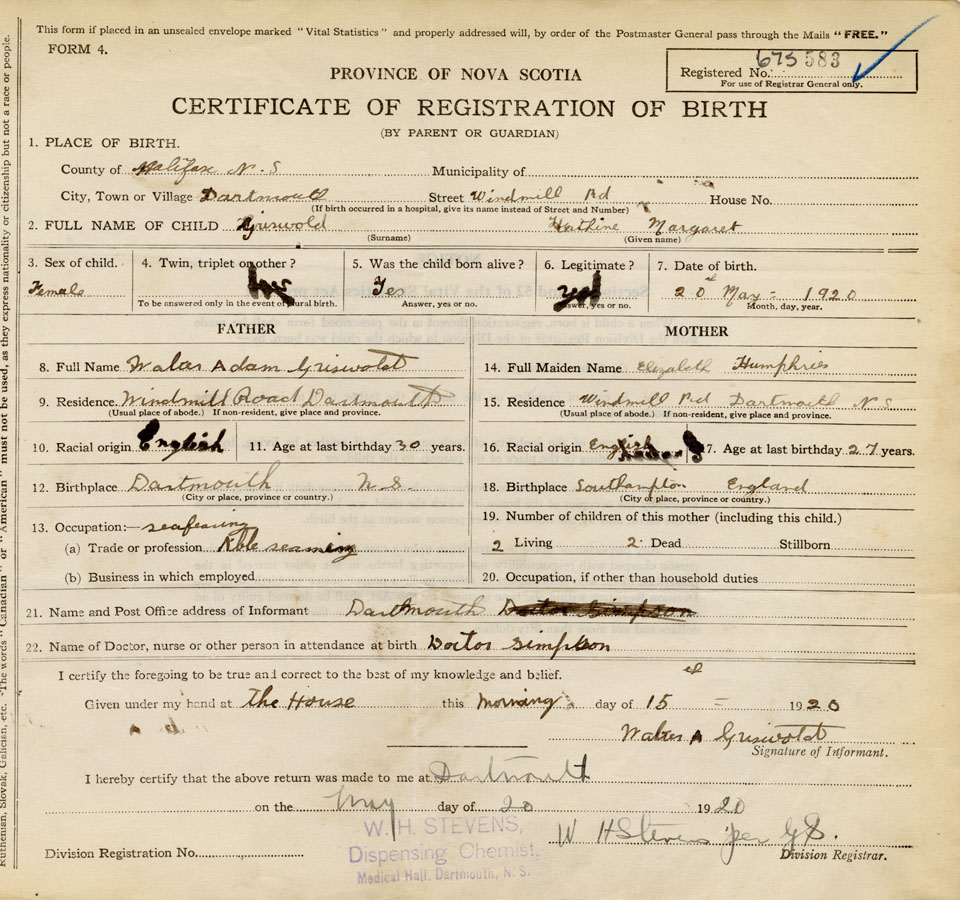 This form if placed in an unsealed envelope marked "Vital Statistics" and properly addressed will, by order of the Postmaster General pass through the Mails "FREE."
FORM 4.
675583
Registered No.
For use of Registrar General only.
PROVINCE OF NOVA SCOTIA
CERTIFICATE OF REGISTRATION OF BIRTH
(BY PARENT OR GUARDIAN)
1. PLACE OF BIRTH.
County of Halifax N.S Municipality of
City, Town or Village Dartmouth Street Windmill Rd House No.
(If birth occurred in a hospital, give its name instead of Street and Number)
2. FULL NAME OF CHILD Griswold Margaret
(Surname) (Given name)
3. Sex of child. 4. Twin, triplet or other? 5. Was the child born alive? 6. Legitimate? 7. Date of birth.
Female Yes yes 20 May 1920
To be answered only in the event of plural birth. Answer, yes or no. Answer, yes or no. Month, day, year.
FATHER MOTHER
8. Full Name Adam Griswold 14. Full Maiden Name Elizabeth Humphries
9. Residence Windmill Road Dartmouth 15. Residence Windmill Rd Dartmouth N S
(Usual place of abode.) If non-resident, give place and province. (Usual place of abode.) If non-resident, give place and province.
10. Racial origin English 11. Age at last birthday 30 years. 16. Racial origin English 17. Age at last birthday 27 years.
12. Birthplace Dartmouth N.S. 18. Birthplace Southampton England
(City or place, province or country.) (City or place, province or country.)
13. Occupation:— seafearing 19. Number of children of this mother (including this child.)
(a) Trade or profession 2 Living 2 Dead Stillborn
(b) Business in which employed 20. Occupation, if other than household duties
21. Name and Post Office address of Informant Dartmouth Doctor Simpson
22. Name of Doctor, nurse or other person in attendance at birth Doctor Simpson
I certify the foregoing to be true and correct to the best of my knowledge and belief.
Given under my hand at The House this Morning day of 15 1920
A Griswold
Signature of Informant.
I hereby certify that the above return was made to me at Dartmouth
on the May day of 20 1920
W. H. STEVENS,
Dispensing Chemist,
Medical Hall, Dartmouth, N. S.
W H Stevens per G S.
Division Registration No. Division Registrar.
Ruthenian, Slovak, Galician, etc. The words "Canadian" or "American" must not be used, as they express nationality or citizenship but not a race or people.